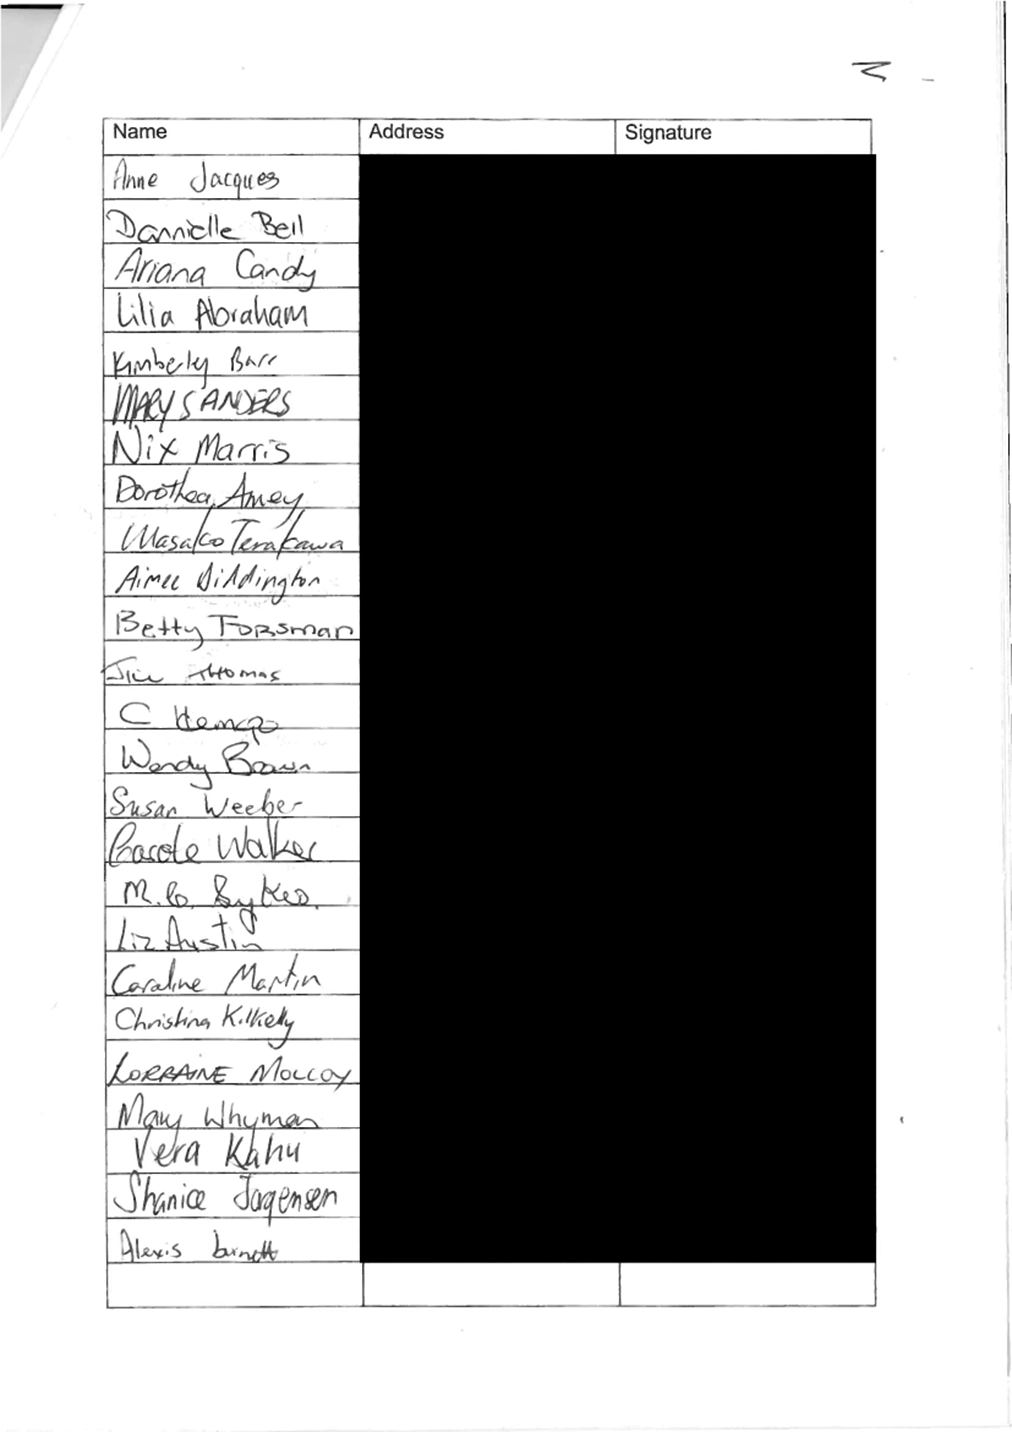 Name Address Signature
Anne Jacques
Dannielle Bell
Ariana Candy
Lilia Abraham
Kimberly Barr
MARY SANDERS
Nix Marris
Dorothea Amey
Masako Terakawa
Aimee Diddington
Betty Forsman
Jill Thomas
C
Wendy Brown
Susan Weeber
Carole Walker
M. Sykes.
Liz Austin
Caroline Martin
Christina Kilkelly
LORRAINE MOLLOY
Mary Whyman
Vera Kahu
Shanice Jorgensen
Alexis